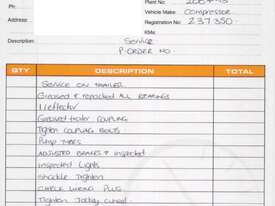 Plant No:
Ph:
Vehicle Make: Compressor
Address:
Registration No: 237350.
KMs:
Description: Service
P-ORDER NO.
QTY DESCRIPTION TOTAL
SERVICE ON TRAILER
Greased & repacked ALL BEARINGS
1 reflector
Greased trailer COUPLING
Tighten COUPLING BOLTS.
Pump TYRES
ADJUSTED BRAKES & Inspected
Inspected Lights
Shackle Tighten
CHECK WIRING PLUG
Tighten Jockey wheel.